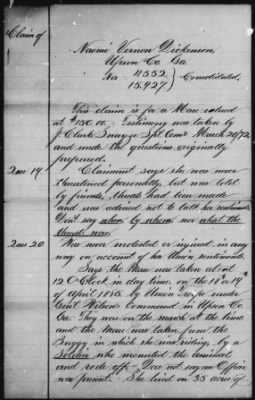 Claim of
Naomi Vernon Dickenson,
Upson Co. Ga.
No 11552 } Consolidated.
15.927
This claim is for a Mare valued
at $150.00. Testimony was taken by
J. Clark Swayze Spl Comr March 20/72
and under the questions originally
prepared.
Ques 19 Claimant says she was never
threatened personally, but was told
by friends, threats had been made
and was advised not to talk her sentiments.
Don't say when by whom nor what the
threats were
Ques 20 Was never molested or injured in any
way on account of her Union sentiments.
Says the Mare was taken about
12 O'Clock in day time, on the 18 or 19th
of April 1865 by Union troops under
Genl Wilson's Command in Upson Co.
Ga. They were on the march at the time
and the Mare was taken from the
Buggy, in which she was riding, by a
Soldier who mounted the animal
and rode off. Does not say an Officer
was present. She lived on 35 acres of